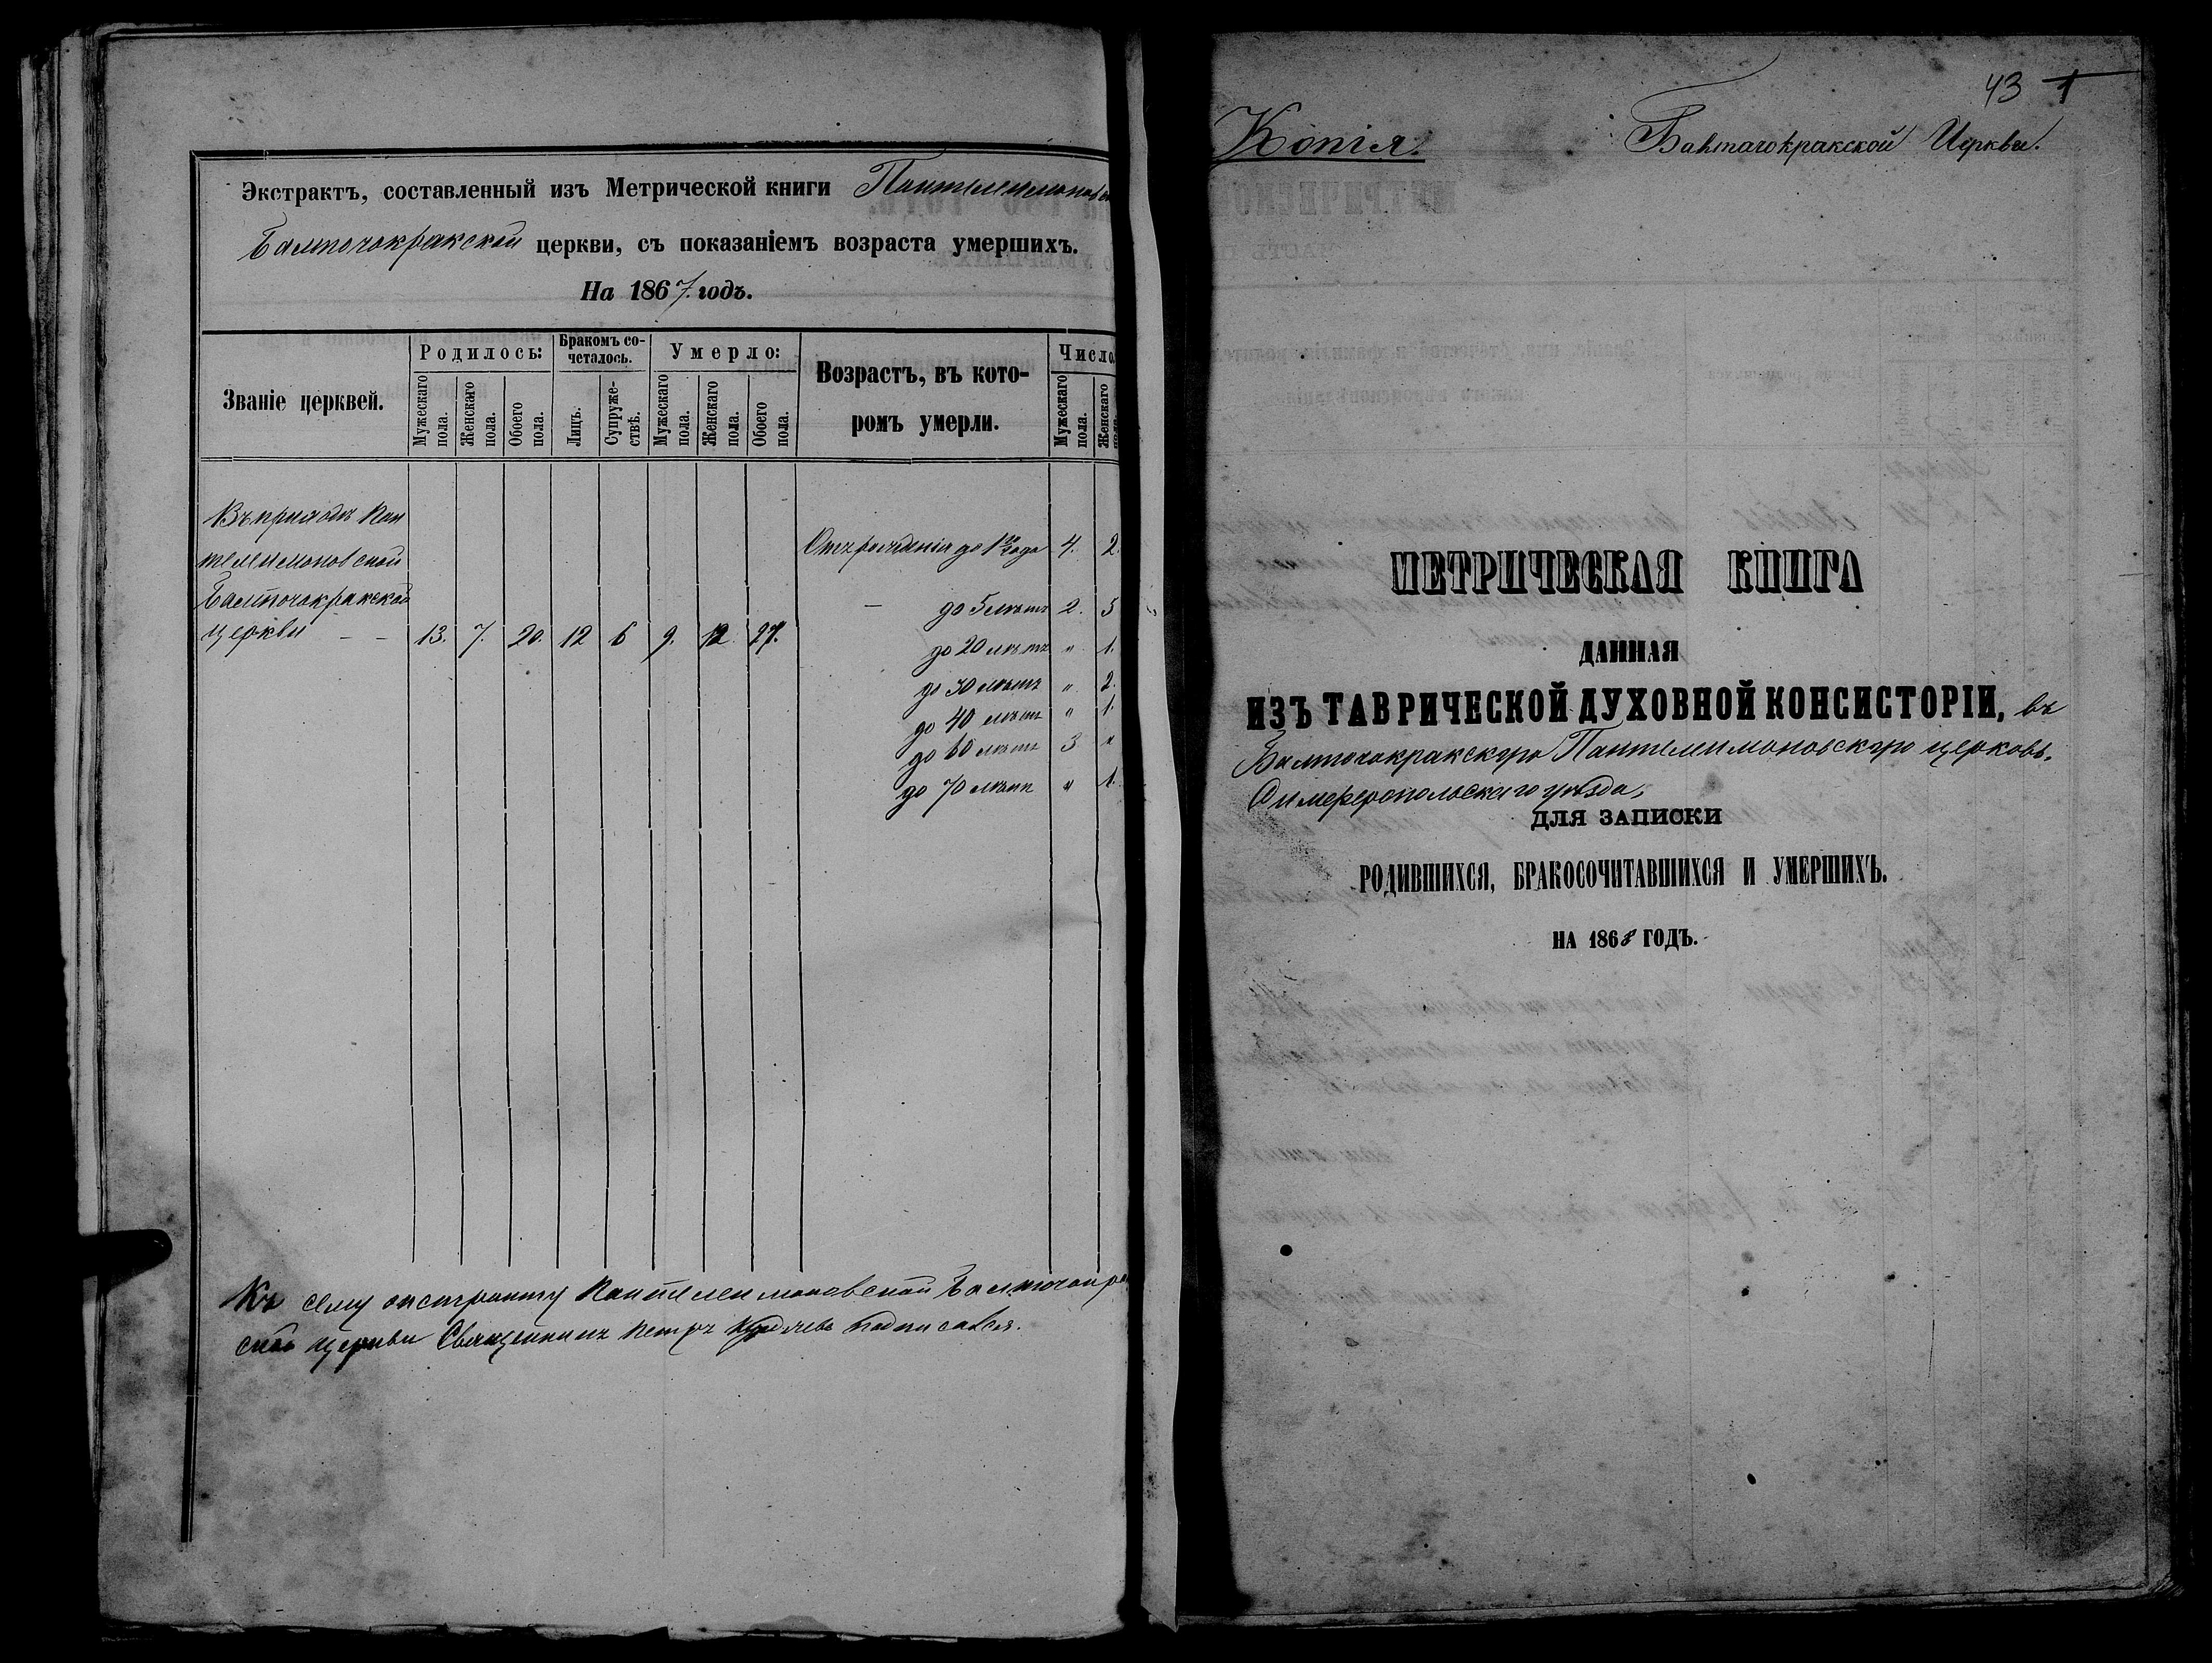 Экстрактъ, составленный изъ Метрической книги Пантелеимоновск
Балточокракской церкви, съ показаніемъ возраста умершихъ.
На 1867 годъ.
Званіе церквей.
Родилось:
Бракомъ со-
четалось.
Умерло:
Возрастъ, въ кото-
ромъ умерли.
Число
Мужескаго пола.
Женскаго пола.
Обоего пола.
Лицъ.
Супруже-
ствъ.
Мужескаго пола.
Женскаго пола.
Обоего пола.
Мужескаго пола.
Женскаго
Въ приходѣ Пан
телеимоновской
Балточокракской
церкви — — 13. 7. 20. 12 6 9. 12. 21.
Отъ рожденія до 1го года 4. 2.
— до 5 лѣтъ 2. 5
до 20 лѣтъ " 1.
до 30 лѣтъ " 2.
до 40 лѣтъ " 1.
до 60 лѣтъ 3 "
до 70 лѣтъ " 1.
Къ сему экстракту Пантелеимоновской Балточокра
ской церкви Священникъ Петръ подписался.
43 1
Копія. Балтачокракской Церкви.
МЕТРИЧЕСКАЯ КНИГА
ДАННАЯ
ИЗЪ ТАВРИЧЕСКОЙ ДУХОВНОЙ КОНСИСТОРІИ, въ
Балточокракскую Пантелимоновскую церковь.
Симферопольскаго уѣзда,
ДЛЯ ЗАПИСКИ
РОДИВШИХСЯ, БРАКОСОЧИТАВШИХСЯ И УМЕРШИХЪ.
НА 1868 ГОДЪ.